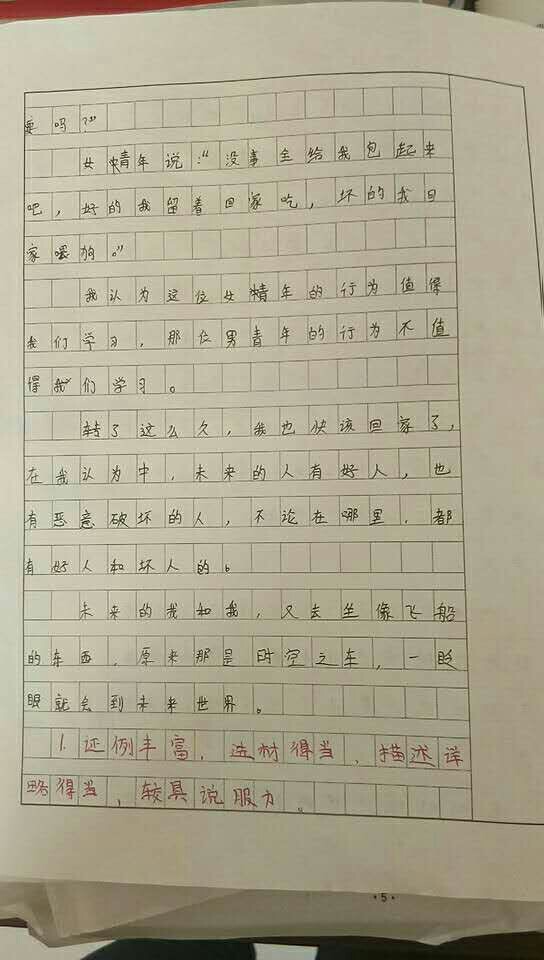 要吗？”
女情年说：“没事全给我包起来
吧，好的我留着回家吃，坏的我回
家喂狗。”
我认为这位女精年的行为值得
我们学习，那位男青年的行为不值
得我们学习。
转了这么久，我也快该回家了，
在我认为中，未来的人有好人，也
有恶意破坏的人，不论在哪里，都
有好人和坏人的。
未来的我和我，又去坐像飞船
的东西，原来那是时空之车，一眨
眼就会到未来世界。
1.证例丰富，选材得当，描述详
略得当，较具说服力。
·5·